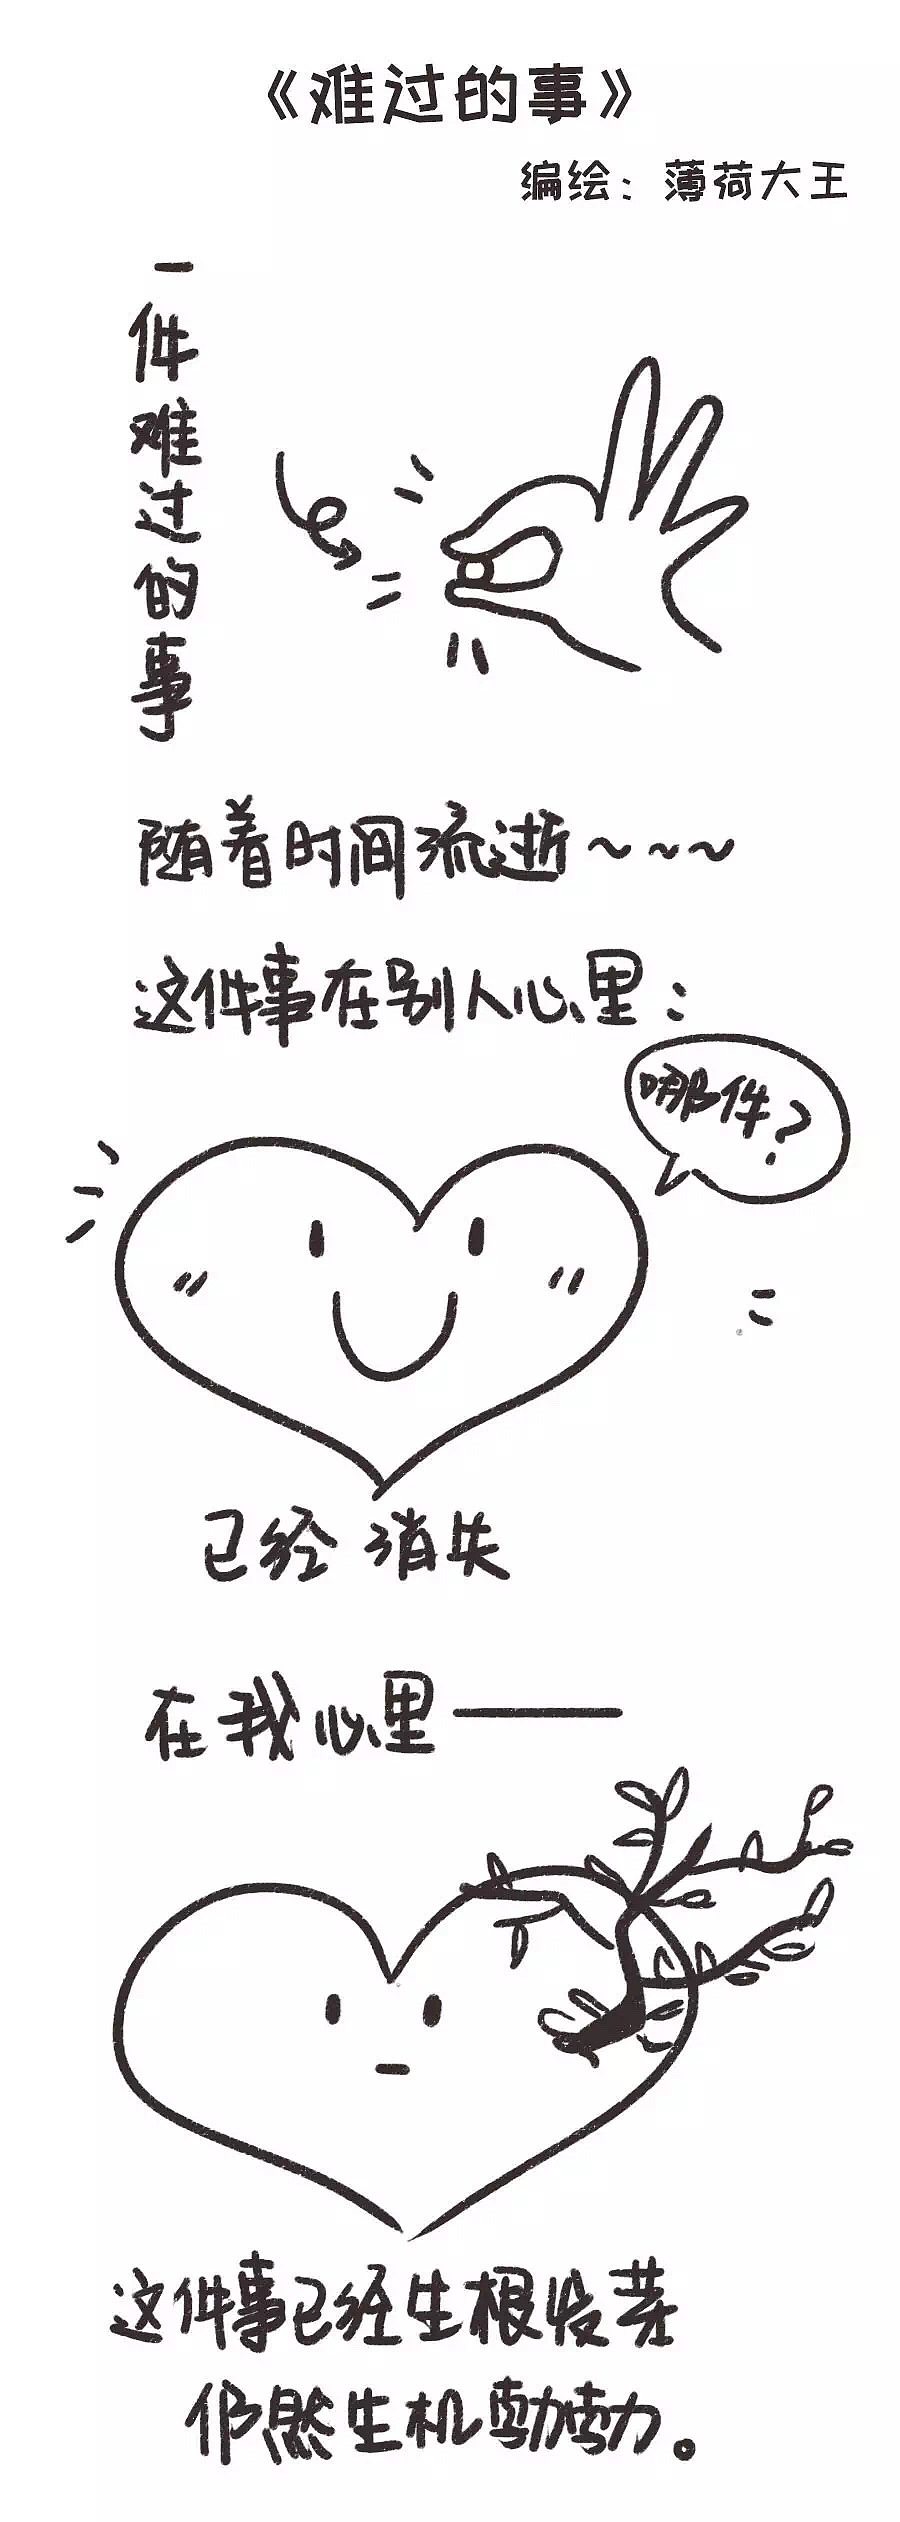 《难过的事》
编绘：薄荷大王
一件难过的事
随着时间流逝~~~
这件事在别人心里：
哪件？
已经消失
在我心里——
这件事已经生根发芽
仍然生机勃勃。